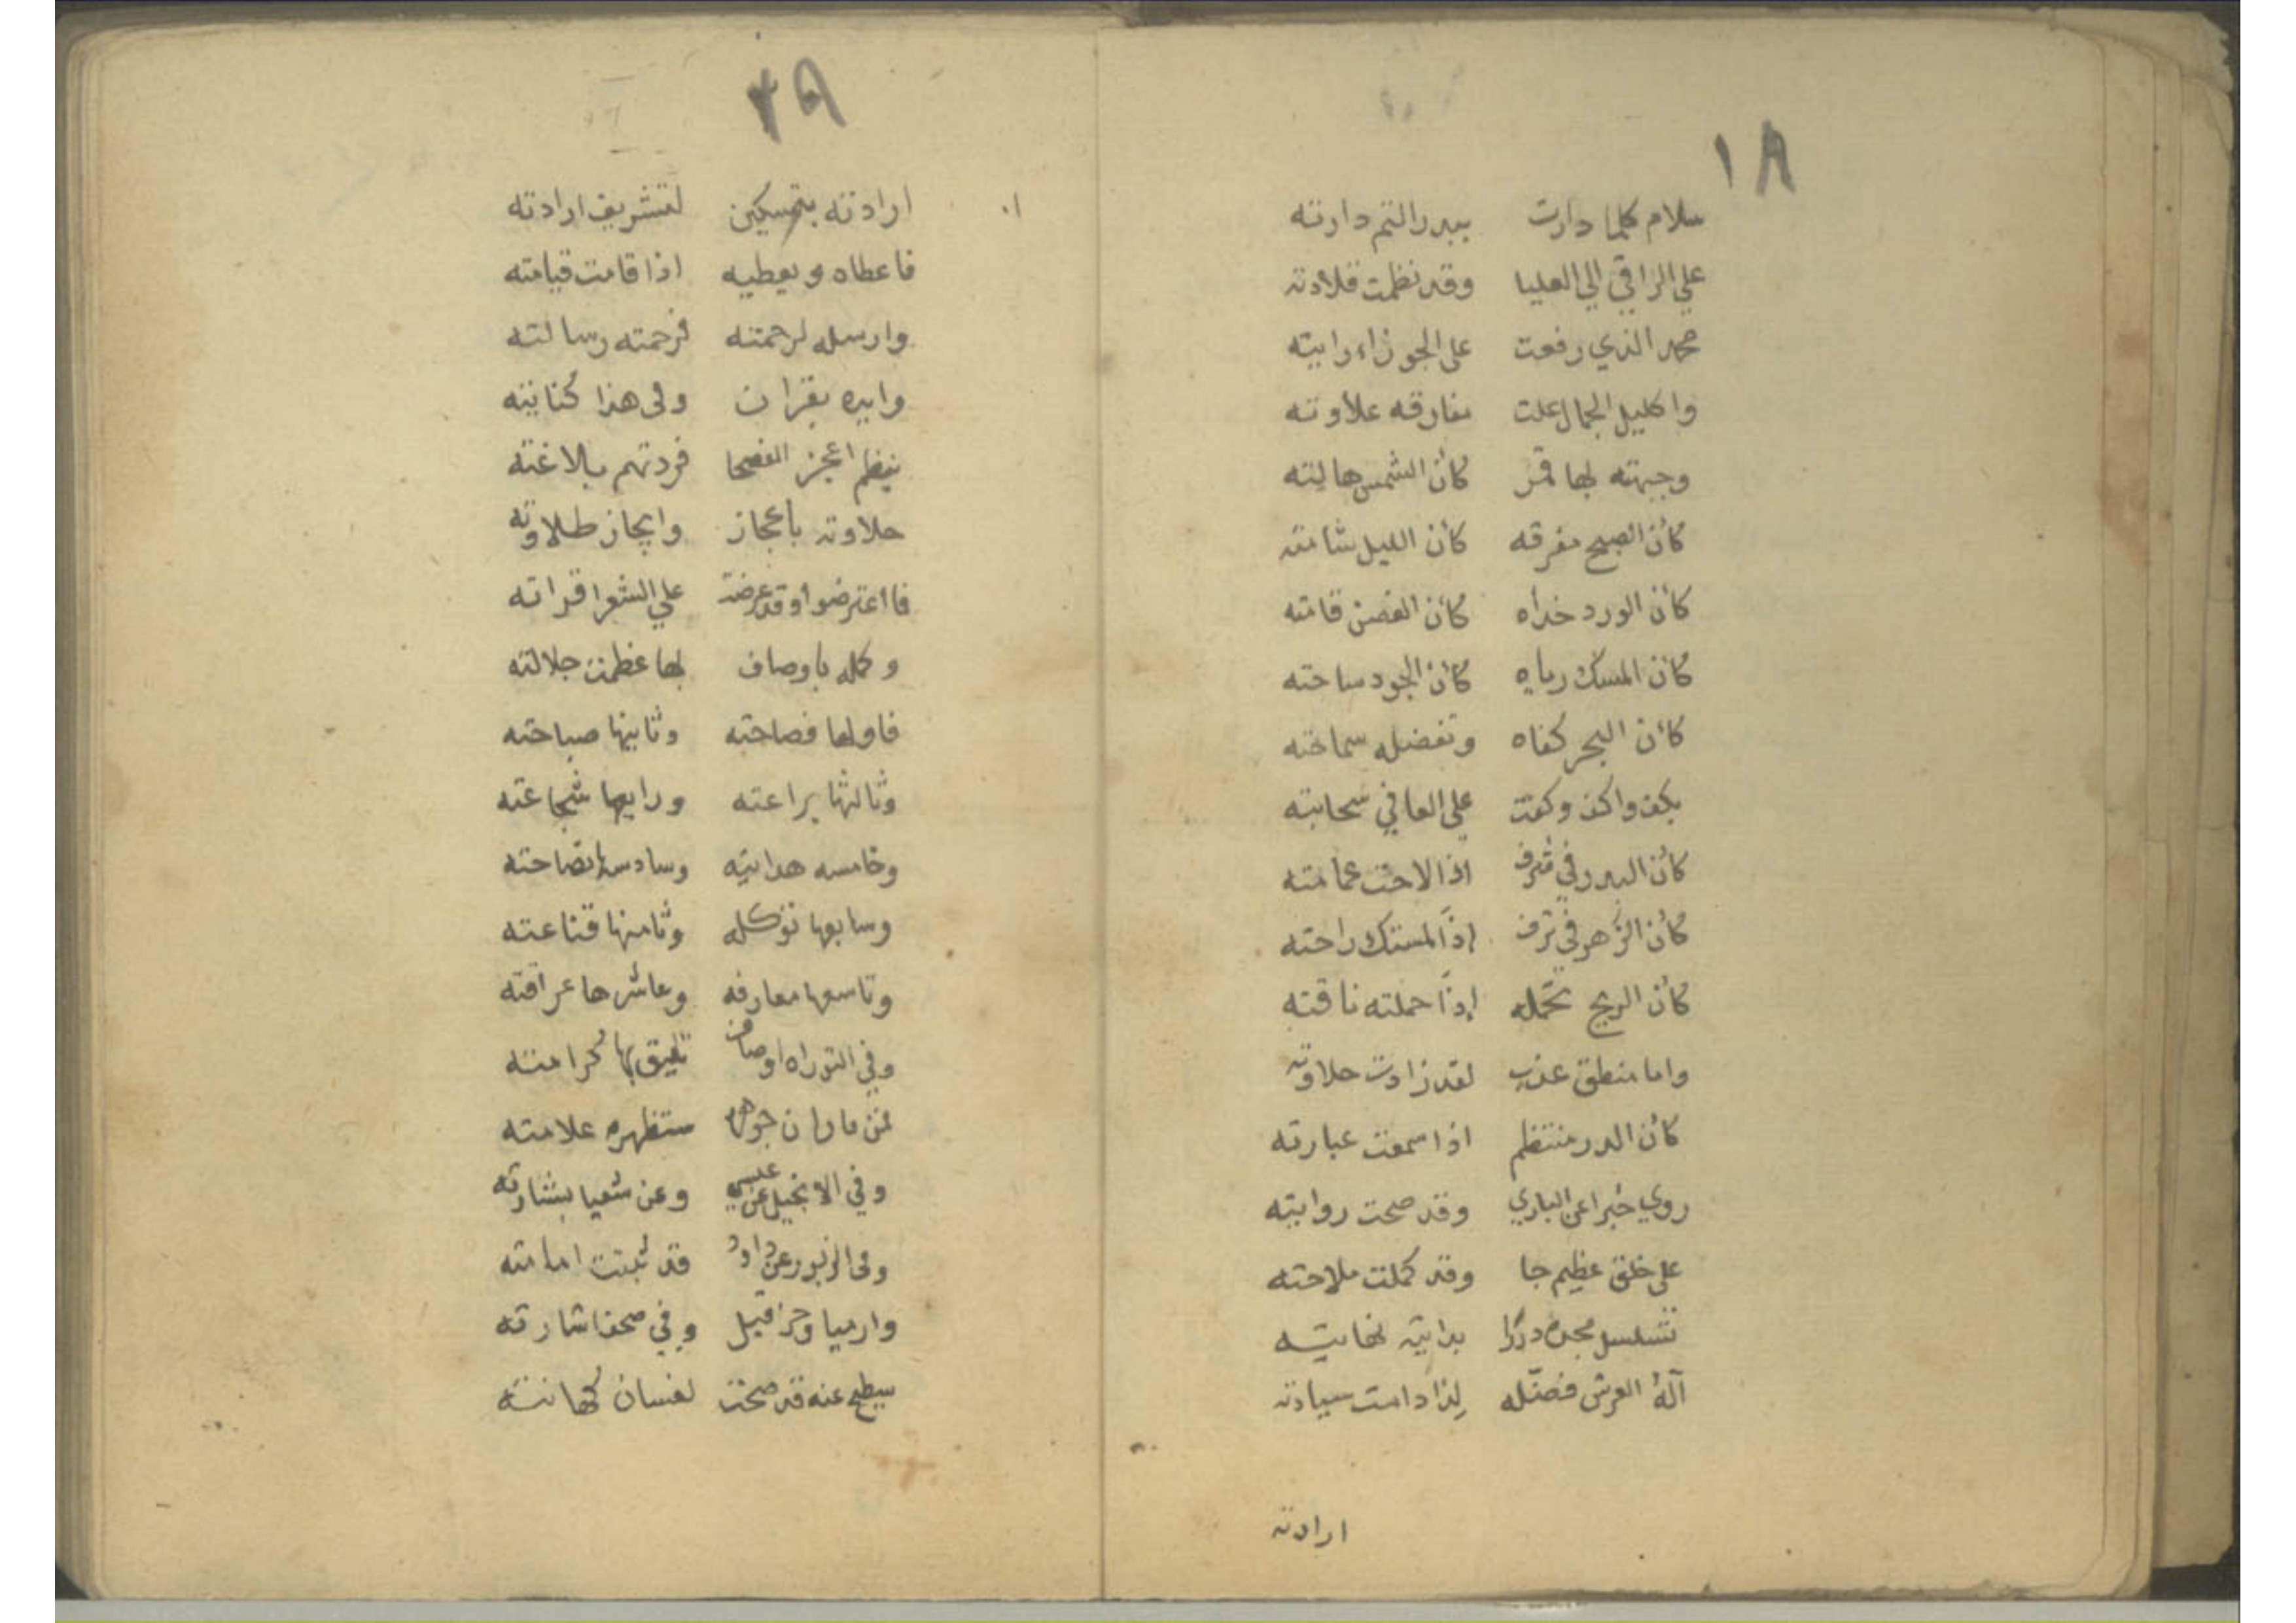 ١٨
سلام كلما دارت ببدر التم دارته
علي الراقي الي العليا وقد نظمت قلادته
محمد الذي رفعت على الجوزاء رايته
واكليل الجمال علت مفارقه علاوته
وجبهته لها قمر كأن الشمس هالته
كأن الصبح مفرقه كأن الليل شامته
كأن الورد خداه كأن الغصن قامته
كأن المسك رياه كأن الجود ساحته
كأن البحر كفاه وتفضله سماحته
بكف واكف وكفت علي العافي سحابته
كأن البدر في شرف اذا لاحت عمامته
كأن الزهر في ترف إذا لمستك راحته
كأن الريح تحمله إذا حملته ناقته
واما منطق عذب لقد زادت حلاوته
كأن الدر منتظم اذا سمعت عبارته
روي خبرا عن الباري وقد صحت روايته
على خلق عظيم جا وقد كملت ملاحته
تسلسل مجده دررا بدايته نهايته
آله العرش فضله لذا دامت سيادته
ارادته
٢٨
ارادته بتمسكين لتشريف ارادته
فاعطاه ويعطيه اذا قامت قيامته
وارسله لرحمته فرحمته رسالته
وايده بقران وفى هذا كنايته
بنظم اعجز الفصحا فردتهم بلاغته
حلاوته باعجاز وايجاز طلاوته
فااعترضوا وقد عرضت علي الشعرا قراته
وكمله باوصاف لها عظمت جلالته
فاولها فصاحته وثانيها صباحته
وثالثها براعته ورابعها شجاعته
وخامسه هدايته وسادسها نصاحته
وسابعها توكله وثامنها قناعته
وتاسعها معارفه وعاشرها عراقته
وفي التوراه اوصاف تليق بها كرامته
فمن فاران ستظهره علامته
وفي الانجيل عن عيسي وعن شعيا بشارته
وفى الزبور عن داود قد ثبتت امامته
وارميا وحزاقيل وفي صحف اشارته
سطيح عنه قد صحت لغسان كهانته